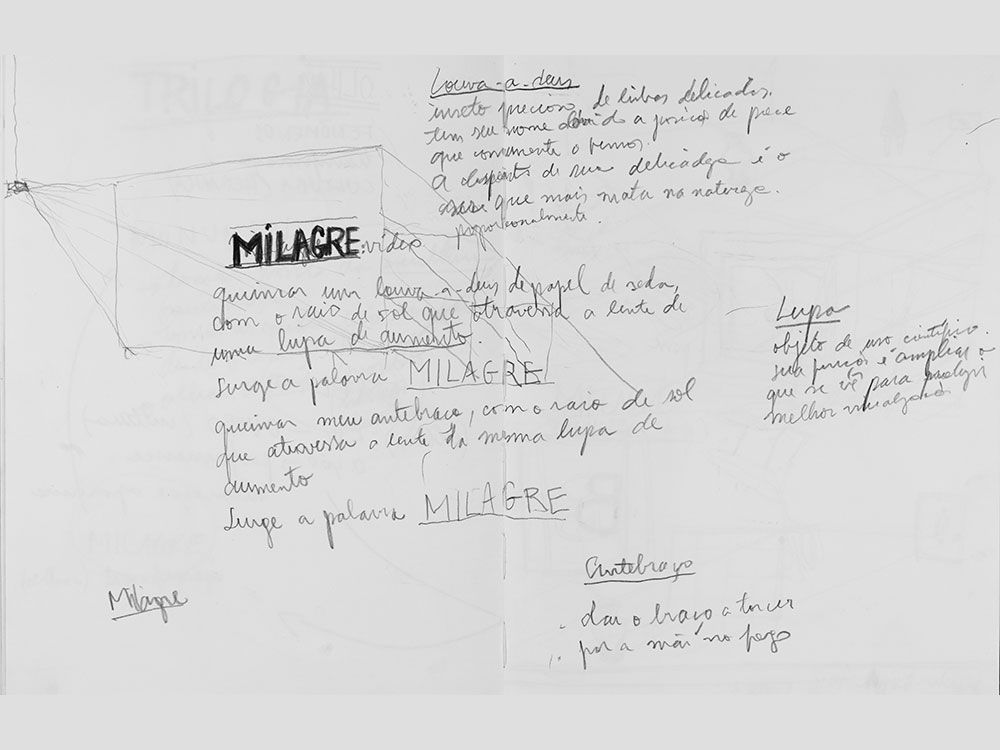 Louva-a-deus
inseto precioso, de linhas delicadas.
tem seu nome devido a posição de prece
que comumente o vemos.
A despeito de sua delicadeza é o
que mais mata na natureza.
proporcionalmente.
MILAGRE. vídeo
queimar um louva-a-deus de papel de seda,
com o raio de sol que atravessa a lente de
uma lupa de aumento.
surge a palavra MILAGRE
queimar meu antebraço, com o raio de sol
que atravessa a lente da mesma lupa de
aumento
surge a palavra MILAGRE
Lupa
objeto de uso científico.
sua função é ampliar o
que se vê para
melhor visualização
Antebraço
dar o braço a torcer
por a mão no fogo
Milagre